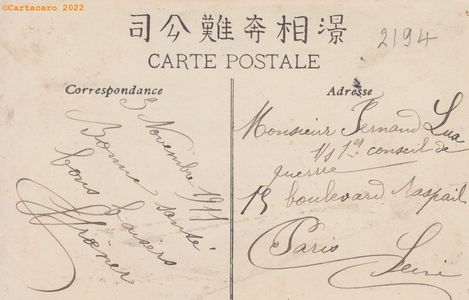 ©Cartacaro. 2022
司公難奔相澋
2194
CARTE POSTALE
Correspondance
3 Novembre 1911
Bonne santé
bons baisers
Adresse
Monsieur Fernand
conseil de
guerre
15 boulevard Raspail
Paris
Seine